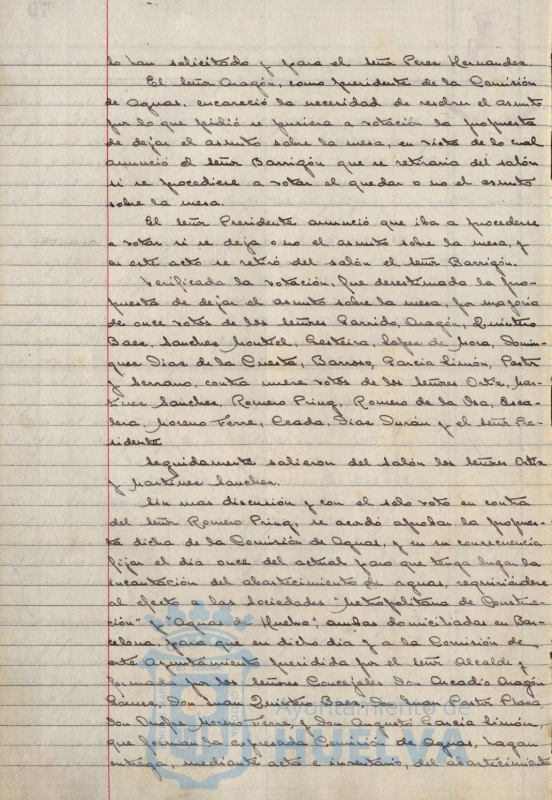 lo han solicitado y para el señor Perez Hernandez.
El señor Aragón, como presidente de la Comisión
de Aguas, encareció la necesidad de resolver el asunto
por lo que pidió se pusiera a votación la propuesta
de dejar el asunto sobre la mesa, en vista de lo cual
anunció el señor Barrigón que se retiraria del salón
si se procediese a votar el quedar o no el asunto
sobre la mesa.
El señor Presidente anunció que iba a procederse
a votar si se deja o no el asunto sobre la mesa, y
en este acto se retiró del salón el señor Barrigón.
Verificada la votación, fue desestimada la pro-
puesta de dejar el asunto sobre la mesa, por mayoria
de once votos de los señores Garrido, Aragón, Quintero
Baez, Sanchez Montiel, Lopez de Mora, Domin-
guez Diaz de la Cuesta, Barroso, Garcia Limón, Pastr
y Serrano, contra nueve votos de los señores Ortiz, Mar-
tinez Sanchez, Romero Pring, Romero de la Osa, Esca-
lera, Moreno Ferre, Ceada, Diaz Durán y el señor Pre-
sidente
Seguidamente salieron del salón los señores Ortiz
y Martinez Sanchez.
Sin mas discusión y con el solo voto en contra
del señor Romero Pring, se acordó aprobar la propues-
ta dicha de la Comisión de Aguas, y en su consecuencia
fijar el dia once del actual para que tenga lugar la
incautación del abastecimiento de aguas, requiriéndose
al efecto a las sociedades "Metropolitana de Construc-
ción" y "Aguas de Huelva", ambas domiciliadas en Bar-
celona, para que en dicho dia y a la Comisión de
este Ayuntamiento presidida por el señor Alcalde y
formada por los señores Concejales Don Arcadio Aragón
Gómez, Don Juan Quintero Baez, Don Juan Pastr Plaza,
Don Onofre Moreno Ferre, y Don Augusto Garcia Limón,
que forman la expresada Comisión de Aguas, hagan
entrega, mediante acta e inventario, del abastecimiento
Ayuntamiento de
HUELVA